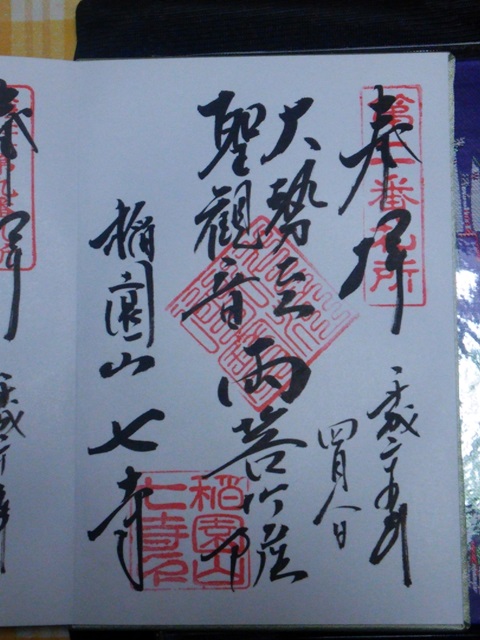 第二番札所
奉拝
平成二十五年
四月八日
大勢至
聖観音
両菩薩
稲園山 七寺
稲園山
七寺印
奉拝
平成二十五年